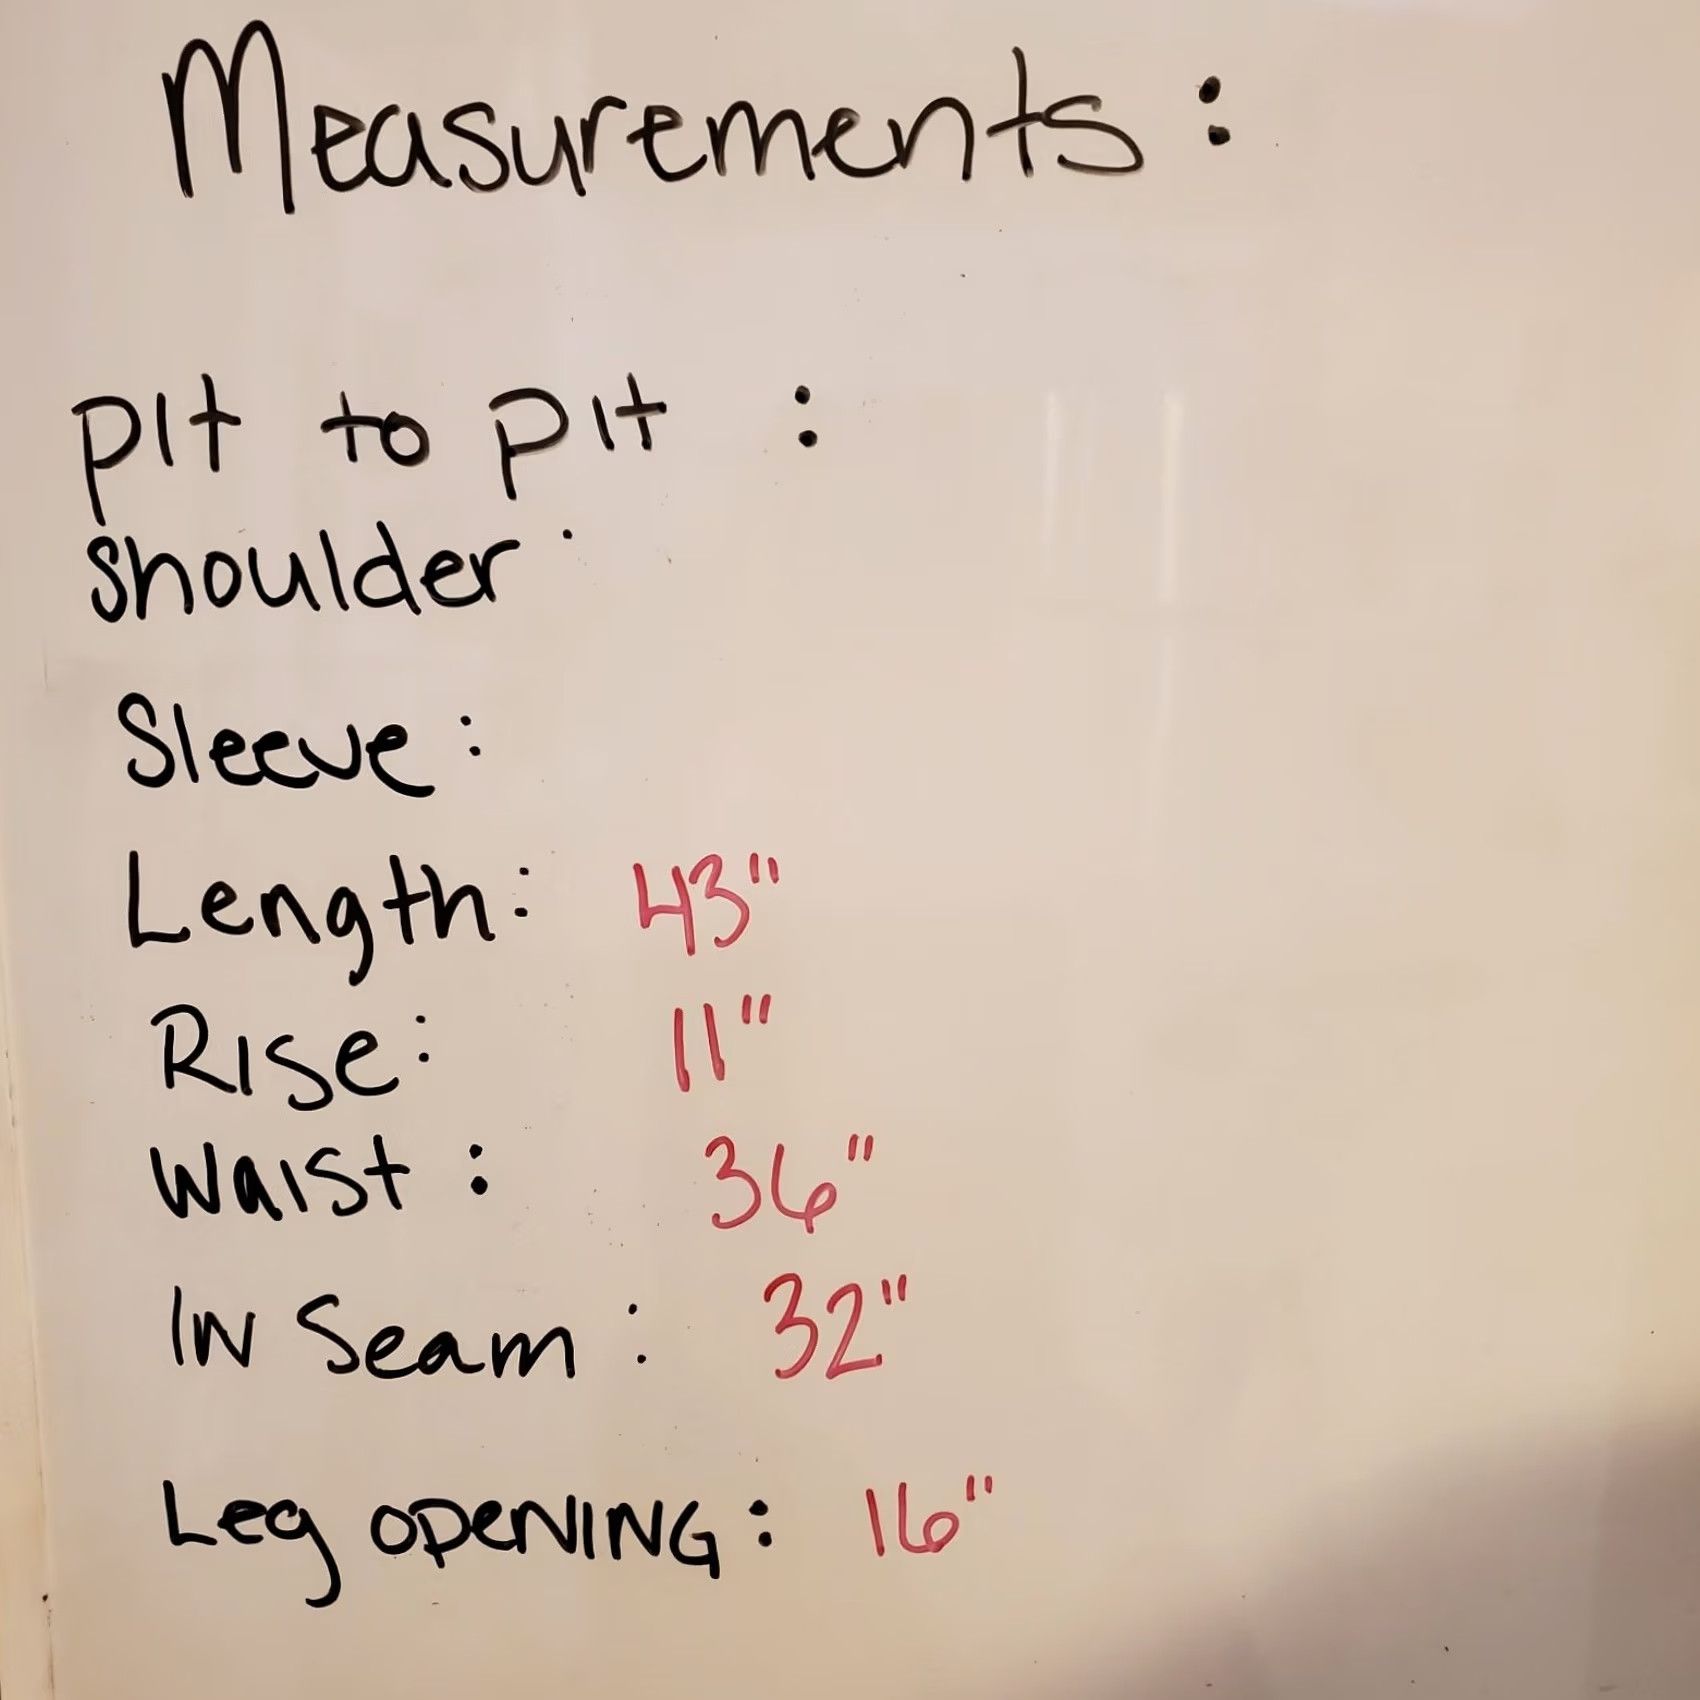 Measurements:
pit to pit :
shoulder:
Sleeve:
Length: 43"
Rise: 11"
Waist: 36"
IN Seam: 32"
Leg OPENING: 16"